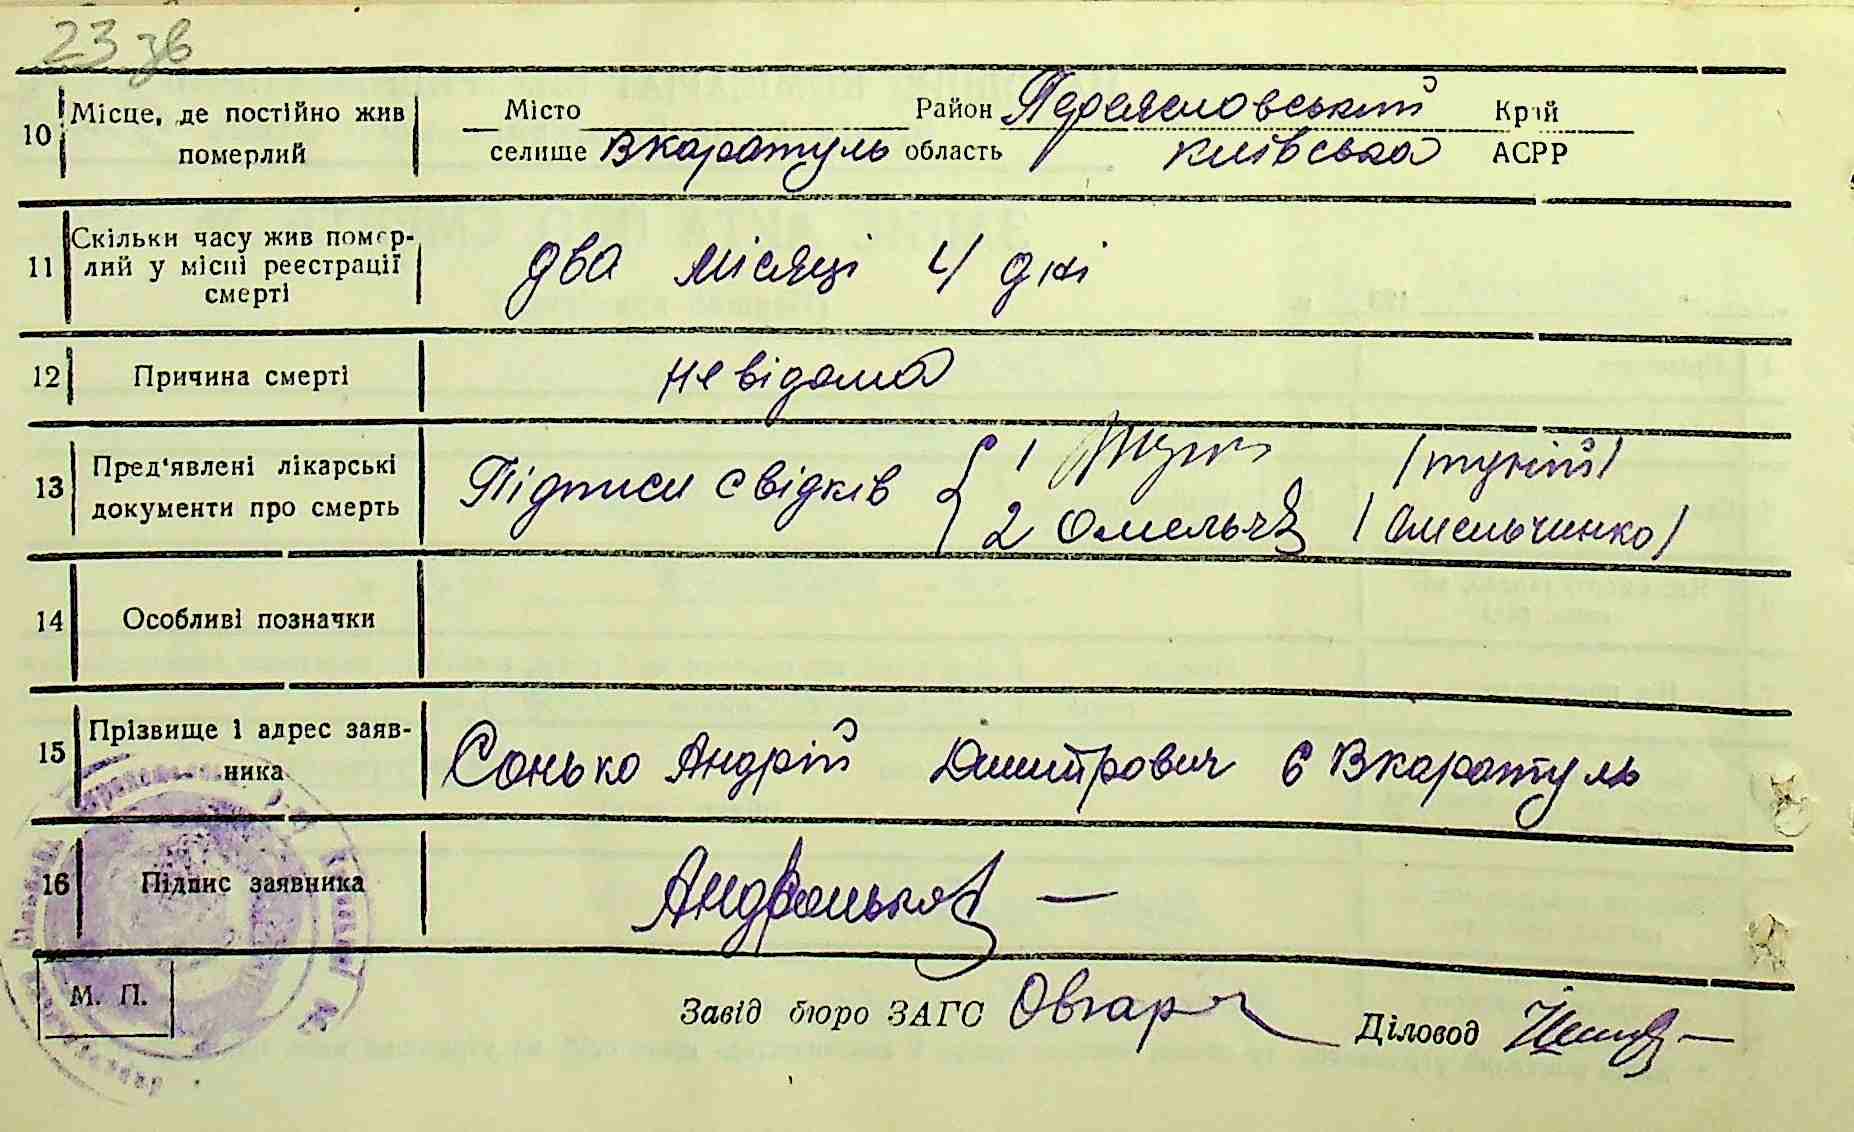 23 зв
10 Місце, де постійно жив померлий
Місто Район Переясловський Край
селище Вкаратуль область київська АСРР
11 Скільки часу жив помер-
лий у місці реєстрації
смерті
два місяці 4 дні
12 Причина смерті
невідома
13 Пред'явлені лікарські
документи про смерть
Підписи свідків
1 /тукій/
2 Омельч /Омельчинко/
14 Особливі позначки
15 Прізвище і адрес заяв-
ника
Сонько Андрій Дмитрович с Вкаратуль
16 Підпис заявника
М. П.
Завід бюро ЗАГС
Діловод